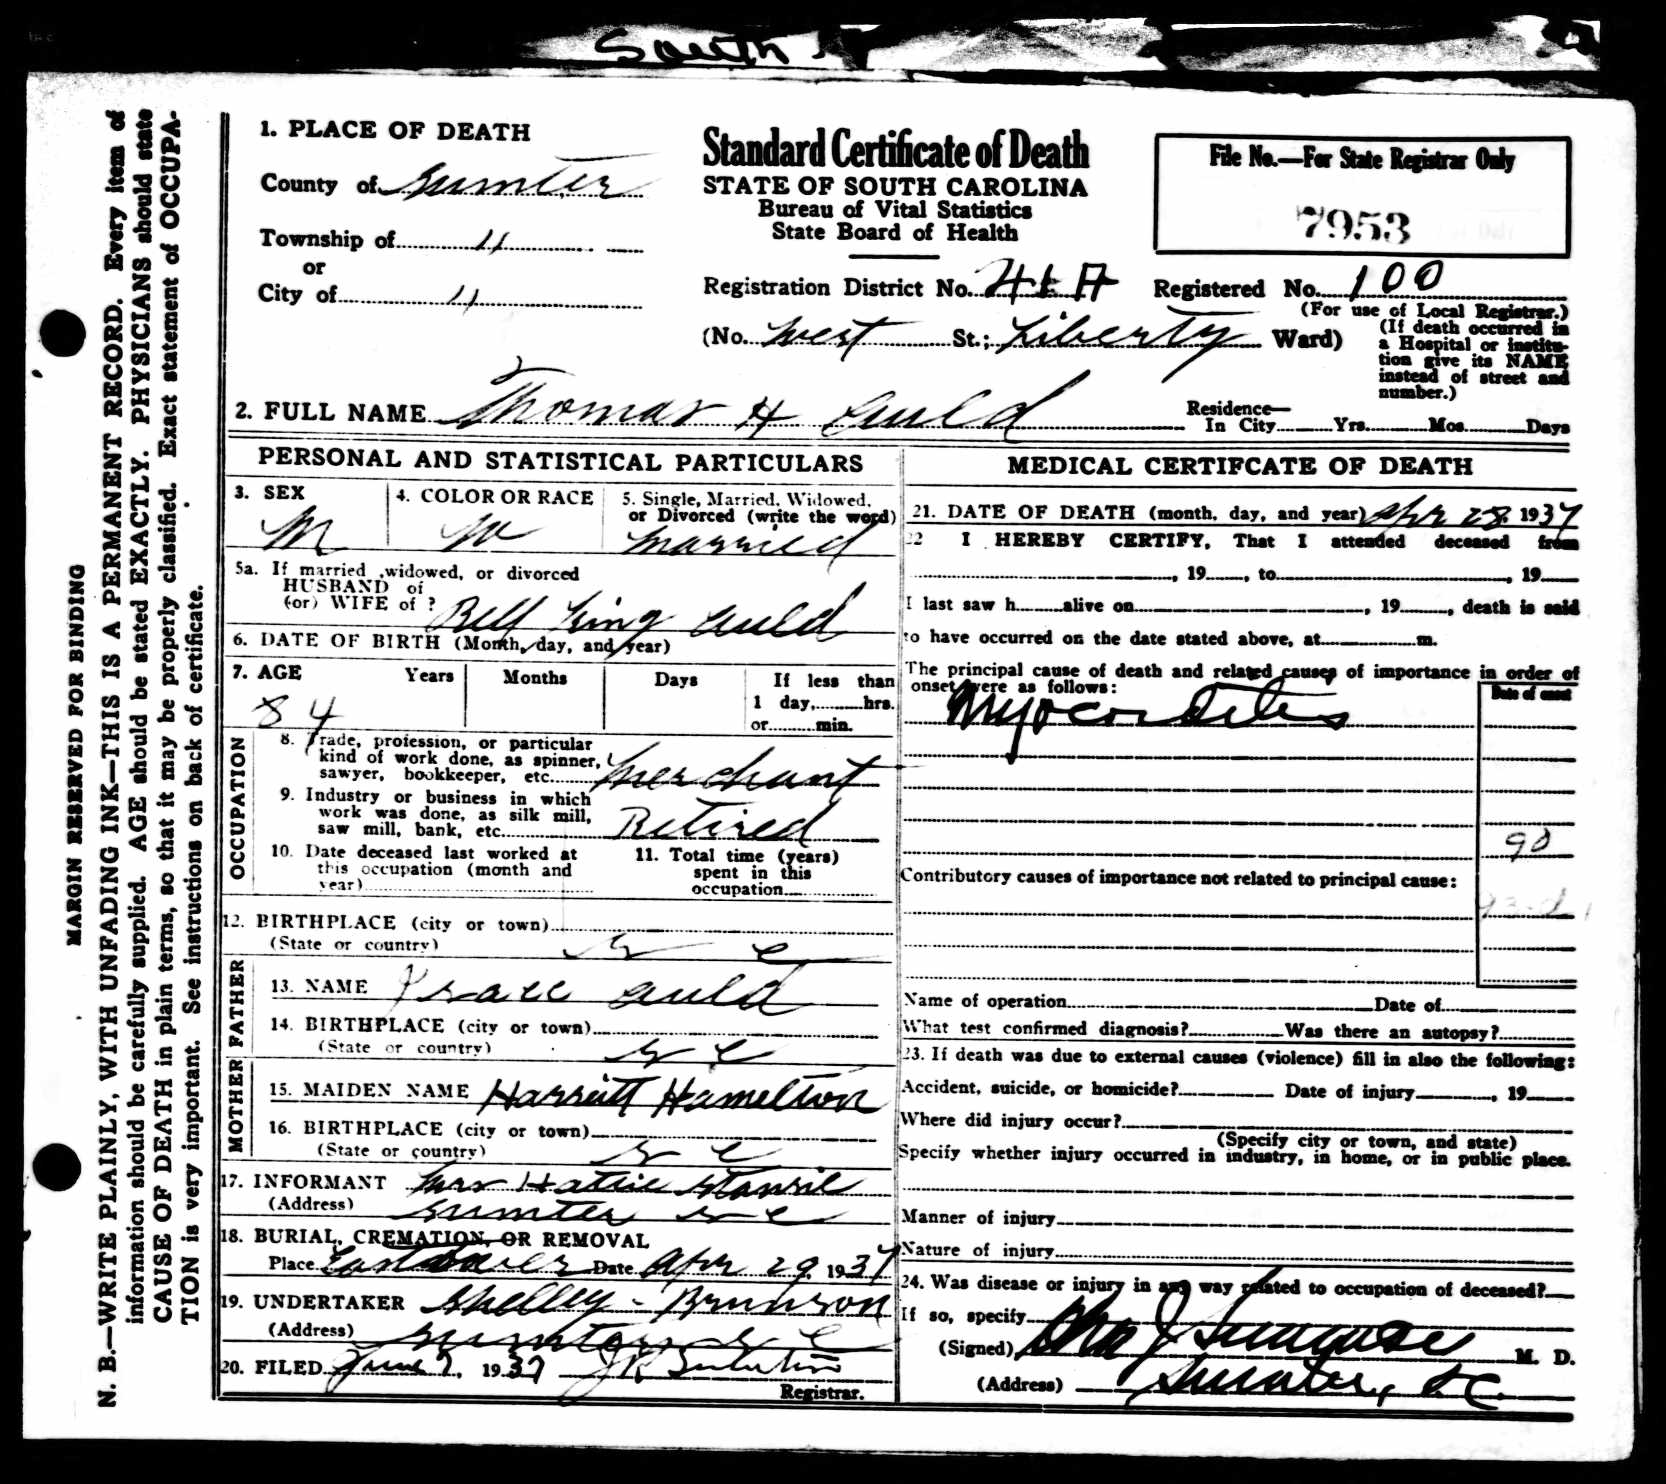 South
1. PLACE OF DEATH
County of Sumter
Township of "
or
City of "
Standard Certificate of Death
STATE OF SOUTH CAROLINA
Bureau of Vital Statistics
State Board of Health
File No.—For State Registrar Only
7953
Registration District No. 41A Registered No. 100
(For use of Local Registrar.)
(No. West St.; Liberty Ward)
(If death occurred in
a Hospital or institu-
tion give its NAME
instead of street and
number.)
2. FULL NAME Thomas H Auld
Residence—
In City Yrs. Mos. Days
PERSONAL AND STATISTICAL PARTICULARS
3. SEX
M
4. COLOR OR RACE
W
5. Single, Married, Widowed,
or Divorced (write the word)
Married
5a. If married, widowed, or divorced
HUSBAND of
(or) WIFE of ? Bell King Auld
6. DATE OF BIRTH (Month, day, and year)
7. AGE Years Months Days If less than
1 day, hrs.
or min.
84
OCCUPATION
8. Trade, profession, or particular
kind of work done, as spinner,
sawyer, bookkeeper, etc. Merchant
9. Industry or business in which
work was done, as silk mill,
saw mill, bank, etc. Retired
10. Date deceased last worked at
this occupation (month and
year)
11. Total time (years)
spent in this
occupation
12. BIRTHPLACE (city or town)
(State or country) S C
FATHER
13. NAME Auld
14. BIRTHPLACE (city or town)
(State or country) S C
MOTHER
15. MAIDEN NAME Harriett Hamelton
16. BIRTHPLACE (city or town)
(State or country) S C
17. INFORMANT Mrs Hattie Stansil
(Address) Sumter S C
18. BURIAL, CREMATION, OR REMOVAL
Place Eastover Date Apr 29 1937
19. UNDERTAKER Shelley - Brunson
(Address) Sumter S C
20. FILED June 7, 1937 J R
Registrar.
MEDICAL CERTIFCATE OF DEATH
21. DATE OF DEATH (month, day, and year) Apr 28 1937
22 I HEREBY CERTIFY, That I attended deceased from
, 19 , to , 19
I last saw h alive on , 19 , death is said
to have occurred on the date stated above, at m.
The principal cause of death and related causes of importance in order of
onset were as follows:
Date of onset
Myocarditis
90
Contributory causes of importance not related to principal cause:
Name of operation Date of
What test confirmed diagnosis? Was there an autopsy?
23. If death was due to external causes (violence) fill in also the following:
Accident, suicide, or homicide? Date of injury , 19
Where did injury occur?
(Specify city or town, and state)
Specify whether injury occurred in industry, in home, or in public place.
Manner of injury
Nature of injury
24. Was disease or injury in any way related to occupation of deceased?
If so, specify
(Signed) M. D.
(Address) Sumter, S.C.
MARGIN RESERVED FOR BINDING
N. B.—WRITE PLAINLY, WITH UNFADING INK—THIS IS A PERMANENT RECORD. Every item of
information should be carefully supplied. AGE should be stated EXACTLY. PHYSICIANS should state
CAUSE OF DEATH in plain terms, so that it may be properly classified. Exact statement of OCCUPA-
TION is very important. See instructions on back of certificate.